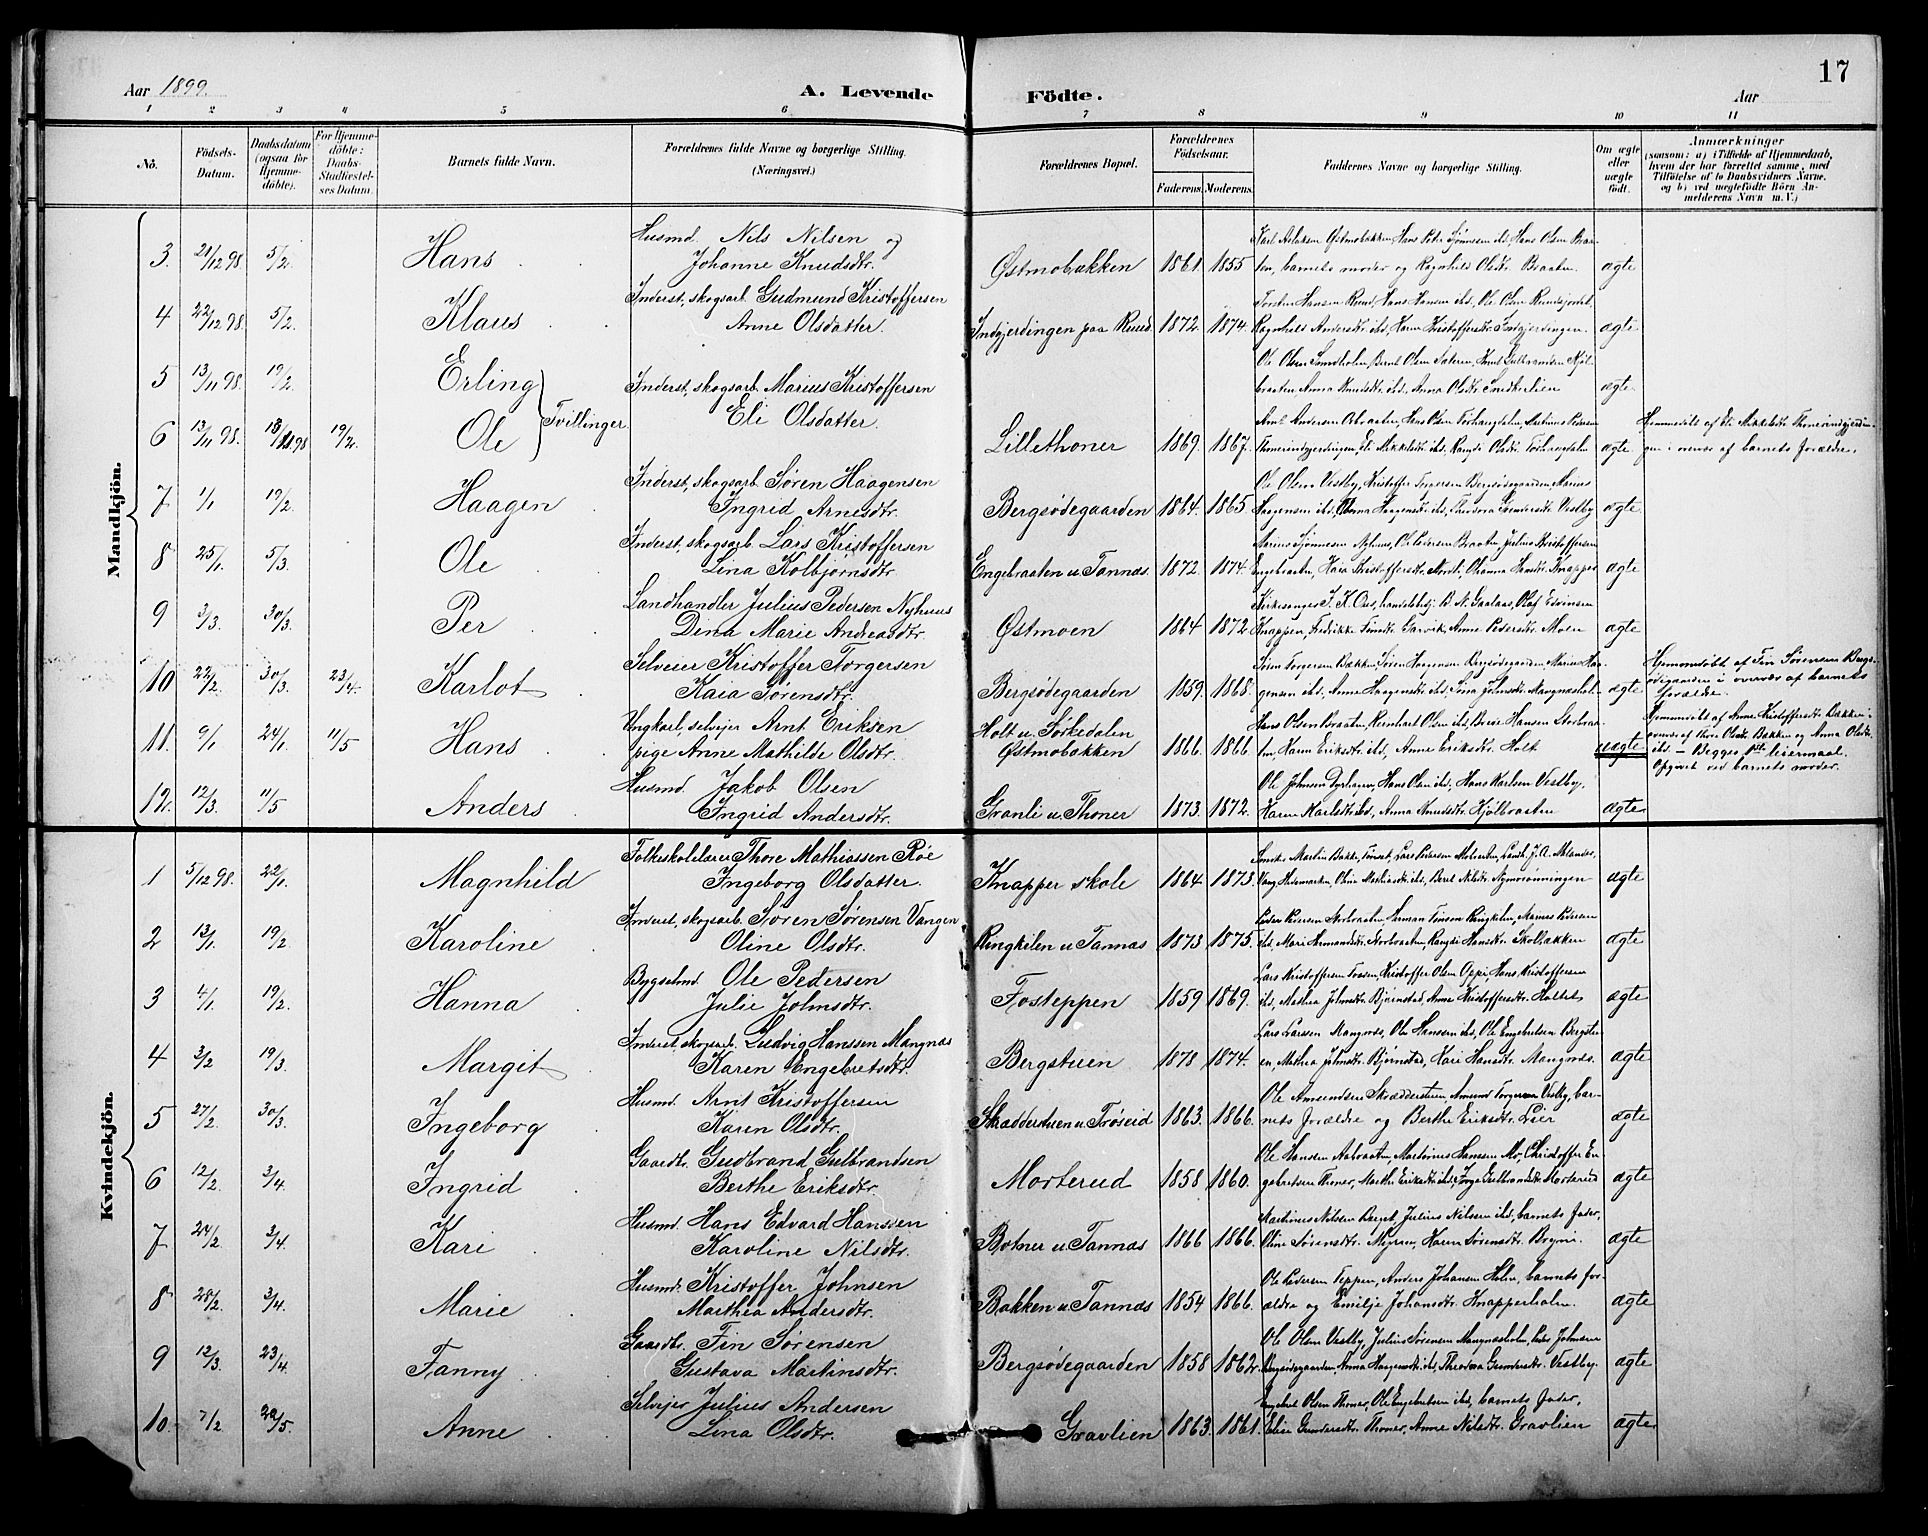 17
Aar 1899.
A. Levende Födte.
Aar
1 2 3 4 5 6 7 8 9 10 11
No. Födsels-Datum. Daabsdatum (ogsaa for Hjemmedöbte). For Hjemmedöbte: Daabs-Stadfæstelses Datum. Barnets fulde Navn. Forældrenes fulde Navne og borgerlige Stilling. (Næringsvei.) Forældrenes Bopæl. Forældrenes Födselsaar. Faderens. Moderens. Faddernes Navne og borgerlige Stilling. Om ægte eller uægte födt. Anmærkninger (saasom: a) i Tilfælde af Hjemmedaab, hvem der har forrettet samme, med Tilföielse af to Daabsvidners Navne, og b) ved uægtefödte Börn Anmelderens Navn m. V.)
Mandkjön.
3. 21/12 98. 5/2. Hans Husmd. Nils Nilsen og
Johanne Knudsdtr. Østmobakken 1861 1855 ægte
Karl Aslaksen Østmobakken, Hans Peter Sjønnesen ibd, Hans Olsen Braa-
ten, barnets moder og Ragnhild Olsdtr. Braaten.
4 22/12 98. 5/2. Klaus Inderst, skogsarb. Gudmund Kristoffersen
Anne Olsdatter. Indgjerdingen paa Ruud. 1872. 1874. ægte
Torsten Hansen Ruud, Hans Hansen ibd, Ole Olsen Ruudsjordet
Ragnhild Andersdtr ibd, Karen Kristoffersdtr. Indgjerdingen.
5 13/11 98. 19/2. Erling } Tvillinger Inderst, skogsarb. Marius Kristoffersen
Eli Olsdatter. ægte
Ole Olsen Sandholen, Bernt Olsen Sateren, Knut Gulbrandsen Kjøl-
braaten, Anna Knudsdtr. ibd, Anna Olsdtr. Snedkerlien
6 13/11 98. 13/11 98 19/2. Ole Lillethoner 1869. 1867. ægte
Thonerindgjerdingen, Eli Mikkelsdtr. ibd,
Hjemmedøbt af Eli Mikkelsdtr. Thonerindgjerdin-
gen i overvær af barnets forældre.
7 1/1 19/2. Haagen Inderst, skogsarb. Søren Haagensen
Ingrid Arnesdtr. Bergsødegaarden 1864. 1865 ægte
Ole Olsen Vestby, Kristoffer Torgersen Bergsødegaarden, Marius
Haagensen ibd, Anna Haagensdtr. ibd, Theodora Gundersdtr. Vestby
8 25/1. 5/3. Ole Inderst, skogsarb. Lars Kristoffersen
Lina Kolbjørnsdtr. Engebraaten u. Tannæs. 1872. 1874. ægte
Marius Sjønnesen Nyhus, Ole Pedersen Braaten, Julius Kristoffersen
Engebraaten, Kari Kristoffersdtr. ibd, Johanna Hansdtr. Knapper
9 3/3. 30/3. Per Landhandler Julius Pedersen Nyhuus
Dina Marie Andreasdtr. Østmoen 1864 1872 ægte
Kirkesanger J. K. Oms, handelsbetj. B. N. Gaalaas, Olaf Edvinsen
Knappen, Fredrikke Garvik, Anne Pedersdtr. Moen
10 22/2. 30/3. 23/4. Karlot Selveier Kristoffer Torgersen
Kaia Sørensdtr. Bergsødegaarden 1859. 1868. ægte
Søren Torgersen Bakken, Søren Haagensen Bergsødegaarden, Marius Haa-
gensen ibd, Anne Haagensdtr. ibd, Lina Johnsdtr. Mangnæshol-
Hjemmedøbt af Fin Sørensen Bergs-
ødegaarden i overvær af barnets
forældre.
11. 9/1 24/1. 11/5 Hans Ungkarl, selvejer Arnt Eriksen
pige Anne Mathilde Olsdtr. Holt u. Sørkedalen
Østmobakken 1866. 1866 uægte
Hans Olsen Braaten, Reinhart Olsen ibd, Hansen Storbraa-
ten, Karen Eriksdtr. ibd, Anne Eriksdtr. Holt
Hjemmedøbt af Anne Kristoffersdtr. Bakken i
overvær af Olsdtr. Bakken og Anna Olsdtr.
ibd. — Begges 1ste leiermaal.
Opgivet ved barnets moder.
12. 12/3. 11/5 Anders Husmd. Jakob Olsen
Ingrid Andersdtr. Granli u. Thoner 1873. 1872. ægte
Ole Johnsen Dyrhaven, Hans Olsen ibd, Hans Karlsen Vestby,
Karen Karlsdtr. ibd, Anna Knudsdtr. Kjølbraaten
Kvindekjön.
1 5/12 98. 22/1. Magnhild Folkeskolelærer Thore Mathiassen Røe
Ingeborg Olsdatter. Knapper skole 1864 1873 ægte
Martin Bakke, Lars Pedersen
Vang Hedemarken, Oline Mathiasdtr. ibd, Beret Nilsdtr. Nymorønningen
2 13/1. 19/2. Karoline Inderst, skogsarb. Søren Sørensen Vangen
Oline Olsdtr. Ringkilen u. Tannæs 1873 1875. ægte
Peder Pedersen Storbraaten, Herman Tinson Ringkilen, Marius Pedersen
ibd, Mari Hermandsdtr. Storbraaten, Rangdi Hansdtr. Skolbakken
3 4/1. 19/2. Hanna Bygselmd. Ole Pedersen
Julie Johnsdtr. Fosteppen 1859 1869. ægte
Lars Kristoffersen Fossen, Kristoffer Olsen Oppi, Hans Kristoffersen
ibd, Mathea Johnsdtr. Bjørnstad, Anne Kristoffersdtr. Holtet
4 3/2 19/3. Margit Inderst, skogsarb. Ludvig Hanssen Mangnæs
Karen Engebretsdtr. Bergstuen 1878 1874. ægte
Lars Larssen Mangnæs, Ole Hanssen ibd, Ole Engebretsen Bergstu-
en, Mathea Johnsdtr. Bjørnstad, Kari Hansdtr. Mangnæs.
5 27/2. 30/3. Ingeborg Husmd. Arnt Kristoffersen
Karen Olsdtr. Skradderstuen u. Trøseid 1863. 1866. ægte
Ole Amundsen Skrædderstuen, Amund Torgersen Vestby, bar-
nets forældre og Berthe Eriksdtr. Lier
6 12/2. 3/4. Ingrid Gaardbr. Gudbrand Gulbrandsen
Berthe Eriksdtr. Morterud 1858 1860. ægte
Ole Hansen Aabraaten, Martinius Hanssen Mo, Christoffer En-
gebretsen Thoner, Marthe Eriksdtr. ibd, Inga Gulbrandsdtr. Morterud
7 24/2. 3/4. Kari Husmd. Hans Edvard Hanssen
Karoline Nilsdtr. Botner u. Tannæs 1866 1866. ægte
Martinus Nilsen Berget, Julius Nilssen ibd, barnets fader,
Oline Sørensdtr. Myren, Karen Sørensdtr. Bryni.
8 28/2. 3/4. Marie Husmd. Kristoffer Johnsen
Marthea Andersdtr. Bakken u. Tannæs 1854 1866. ægte
Ole Pedersen Teppen, Anders Johansen Holm, barnets for-
ældre og Emilje Johansdtr. Knapperholm.
9 12/3. 23/4. Fanny Gaardbr. Fin Sørensen
Gustava Martinsdtr. Bergsødegaarden 1858 1862. ægte
Ole Olsen Vestby, Julius Sørensen Mangnæsholm, Peder Johnsen
Bergsødegaarden, Anna Haagensdtr. ibd, Theodora Gundersdtr. Vestby.
10. 7/2 22/5. Anne Selvejer Julius Andersen
Lina Olsdtr. Gravlien 1863. 1861. ægte
Engebret Olsen Thoner, Ole Engebretsen ibd, barnets fader,
Elise Gundersdtr. Thoner, Anne Nilsdtr. Gravlien